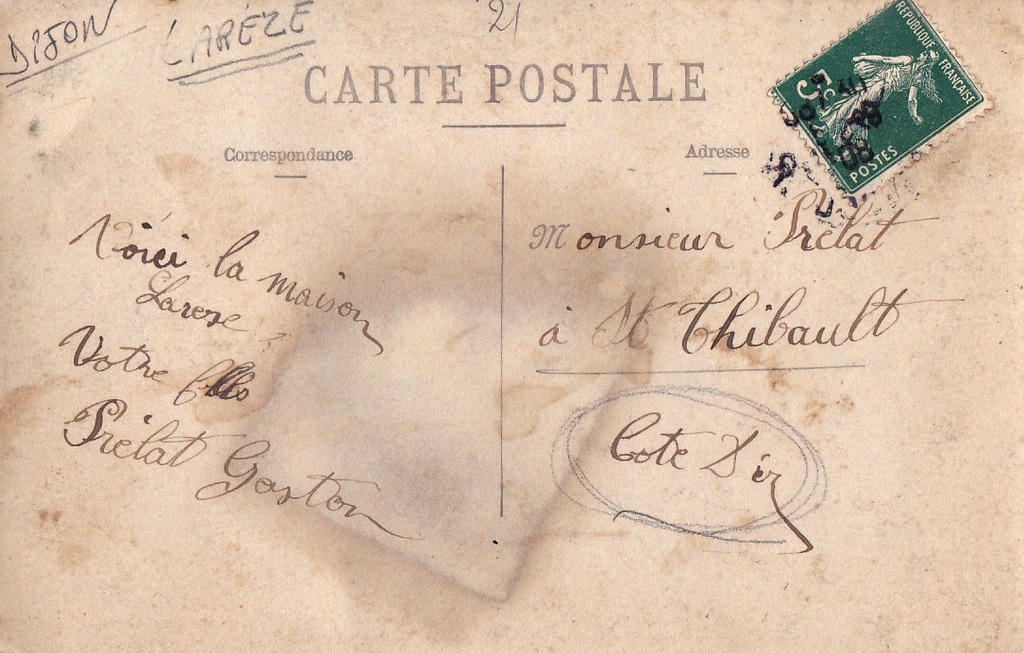 DIJON
LARÈZE
21
CARTE POSTALE
RÉPUBLIQUE FRANÇAISE
5c
POSTES
Correspondance
Adresse
Voici la maison
Lareze
Votre fils
Prélat Gaston
Monsieur Prélat
à St Thibault
Cote D'or